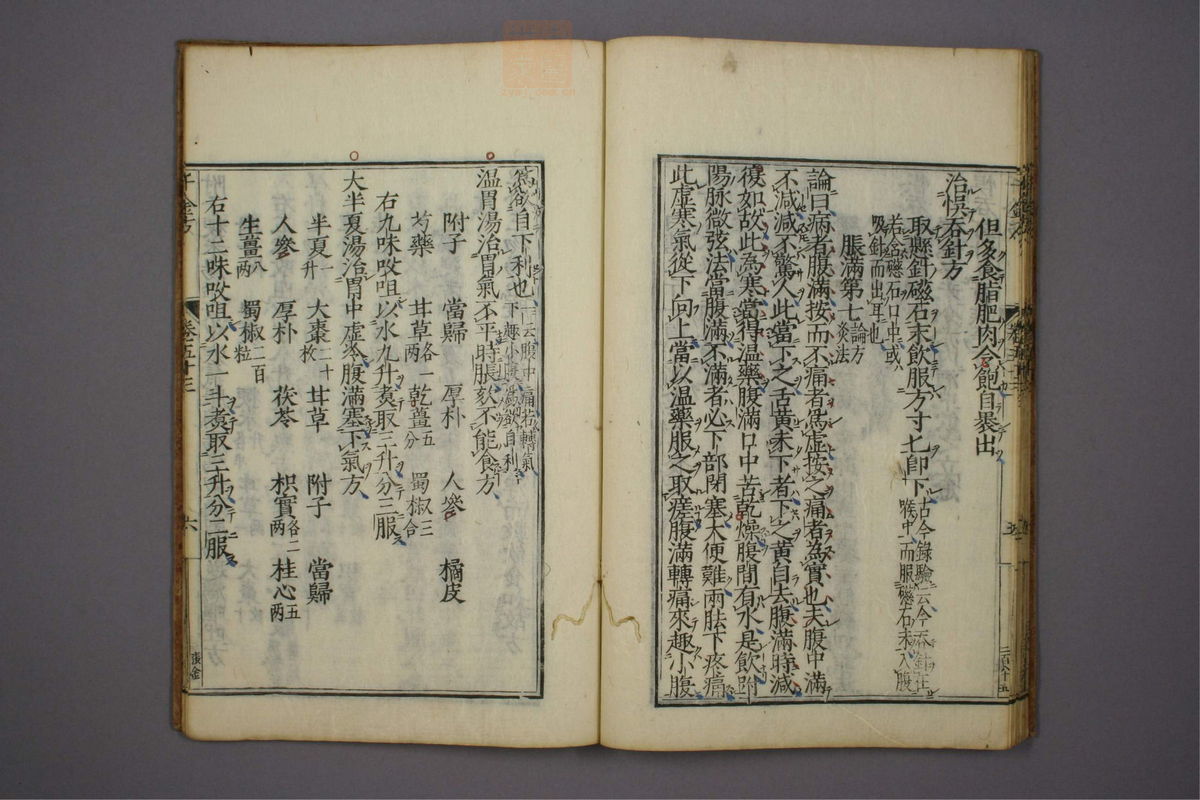 但多食脂肥肉令飽自裹出
治悞吞針方
取懸針磁石末飲服方寸匕卽下古今錄驗云今吞針在喉中而服磁石末入腹
若含磁石口中或吸針而出耳也
脹滿第七論方灸法
論曰病者腹滿按而不痛者爲虛按之痛者爲實也夫腹中滿
不減減不驚人此當下之舌黃未下者下之黃自去腹滿時減
復如故此爲寒當得温藥腹滿口中苦乾燥腹間有水是飲趺
陽脉微弦法當腹滿不滿者必下部閉塞大便難兩胠下疼痛
此虛寒氣從下向上當以温藥服之取瘥腹滿轉痛來趣小腹
爲欲自下利也一云腹中痛若轉氣下趣小腹爲欲自利
温胃湯治胃氣不平時脹欬不能食方
附子 當歸 厚朴 人參 橘皮
芍藥 甘草各一兩 乾薑五分 蜀椒三合
右九味㕮咀以水九升煑取三升分三服
大半夏湯治胃中虛冷腹滿塞下氣方
半夏一升 大棗二十枚 甘草 附子 當歸
人參 厚朴 茯苓 枳實各二兩 桂心五兩
生薑八兩 蜀椒二百粒
右十二味㕮咀以水一斗煑取三升分三服
千金方 卷五十三 六